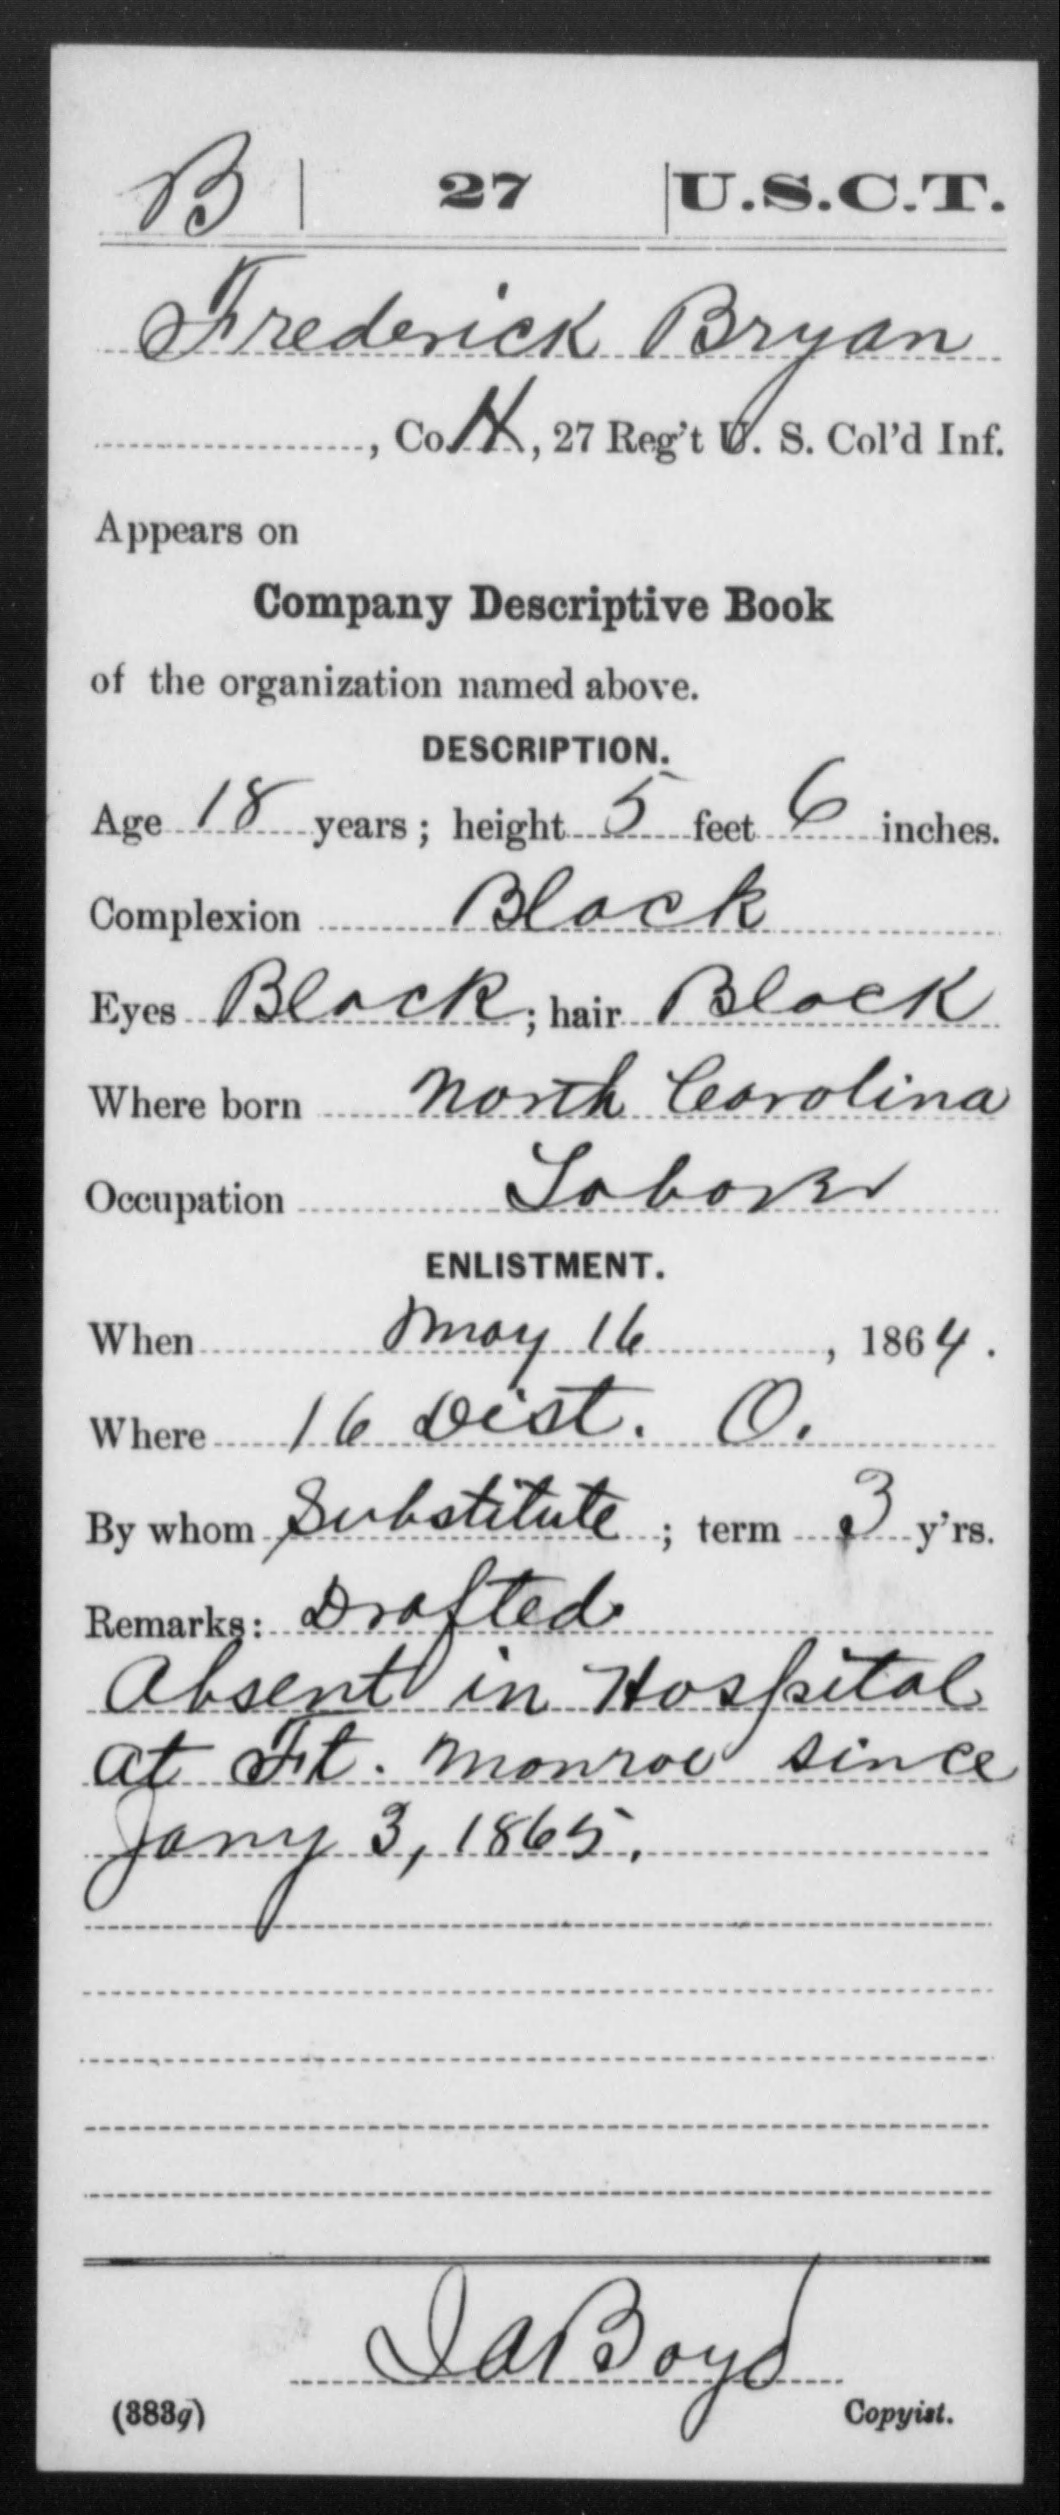 B | 27 | U.S.C.T.
Frederick Bryan
, Co. H, 27 Reg't U. S. Col'd Inf.
Appears on
Company Descriptive Book
of the organization named above.
DESCRIPTION.
Age 18 years; height 5 feet 6 inches.
Complexion Black
Eyes Black; hair Black
Where born North Carolina
Occupation Laborer
ENLISTMENT.
When May 16, 1864.
Where 16 Dist. O.
By whom Substitute; term 3 y'rs.
Remarks: Drafted
Absent in Hospital
at Ft. Monroe since
Jany 3, 1865.
J A Boyd
(383g) Copyist.